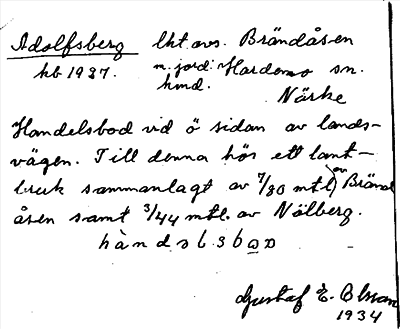 Adolfsberg lht. avs. Brändåsen
hb 1937. n. jord: Hardemo sn.
hmd. Närke
Handelsbod vid ö sidan av lands-
vägen. Till denna hör ett lant-
bruk sammanlagt av 7/80 mtl av Bränd-
åsen samt 3/44 mtl. av Nälberg.
Gustaf E. Olsson
1934